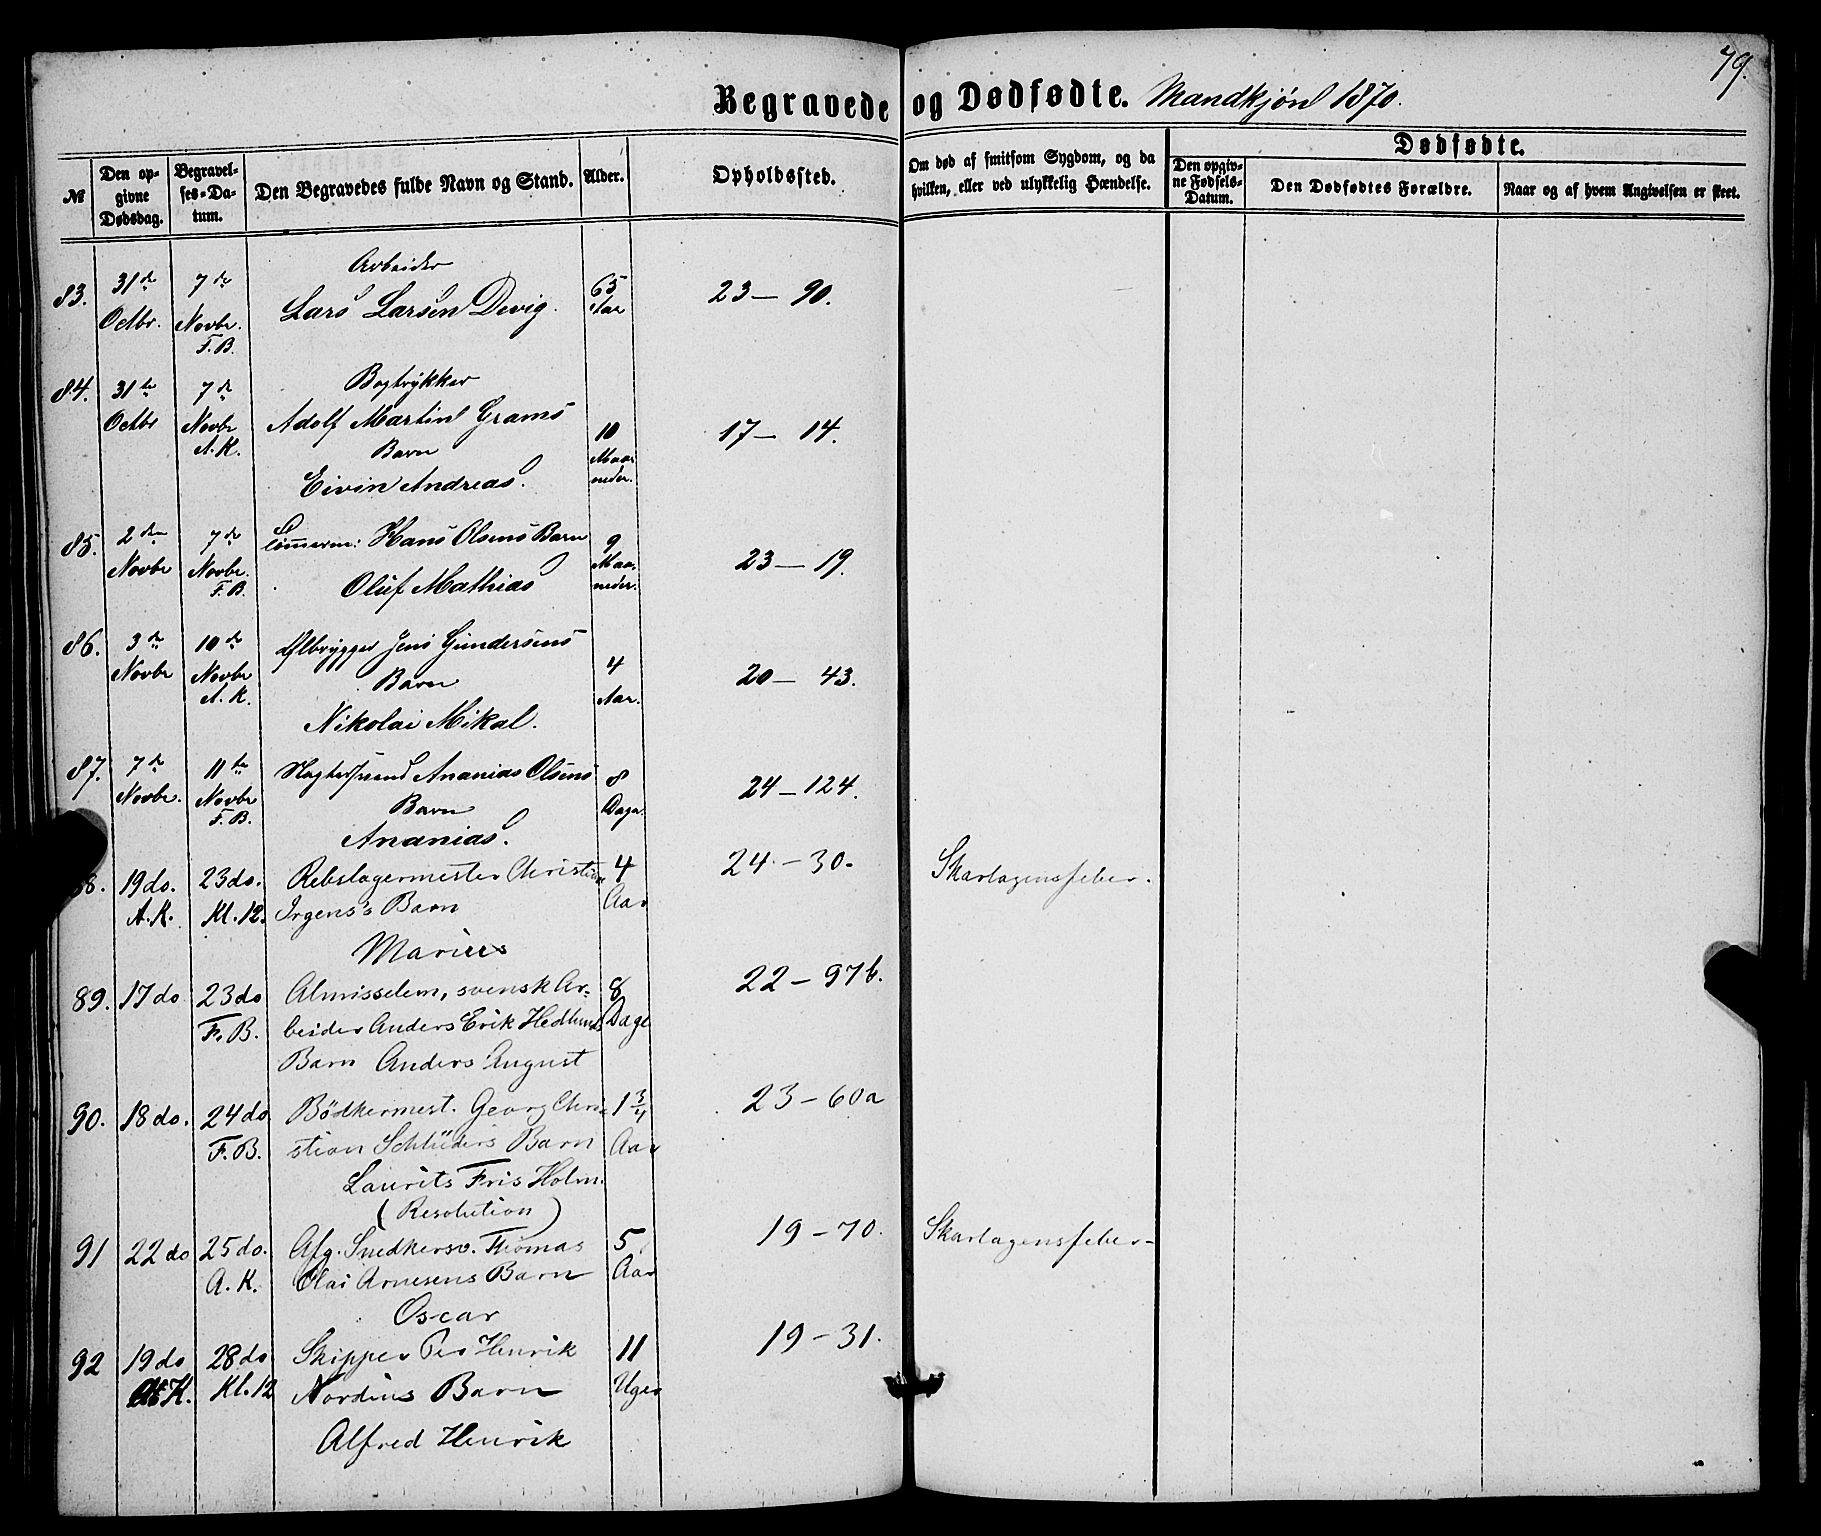 79.
Begravede og Dødfødte. Mandkjøn 1870.
№
Den opgivne Dødsdag.
Begravelses-Datum.
Den Begravedes fulde Navn og Stand.
Alder.
Opholdssted.
Om død af smitsom Sygdom, og da hvilken, eller ved ulykkelig Hændelse.
Dødfødte.
Den opgivne Fødsels-Datum.
Den Dødfødtes Forældre.
Naar og af hvem Angivelsen er skeet.
Arbeider
83. 31te Octbr. 7de Novbr. F. B. Lars Larsen Devig. 65 Aar 23 — 90.
84. 31te Octbr 7de Novbr A. K. Bogtrykker
Adolf Martin Grams
Barn
Eivin Andreas. 10 Maaneder. 17 — 14.
85. 2den Novbr 7de Novbr. F. B. Tømmerm: Hans Olsens Barn
Oluf Mathias 9 Maaneder. 23 — 19.
86. 3de Novbr 10de Novbr A. K. Ølbrygger Jens Gundersens
Barn
Nikolai Mikal. 4 Aar. 20 — 43.
87. 7de Novbr. 11te Novbr F. B. Ananias Olsens
Barn
Ananias. 8 Dage. 24 — 124.
88. 19 do. A. K. 23 do. Kl. 12. Rebslagermester Christian
Irgens's Barn
Marius 4 Aar 24 — 30. Skarlagensfeber.
89. 17 do 23 do F. B. Almisselem, svensk Ar-
beider Anders Erik Hedlunds
Barn Anders August 8 Dage 22 — 97 b.
90. 18 do. 24 do F. B. Bödkermest. Georg Chri-
stian Schlüters Barn
Laurits Fris Holm.
(Resolution) 1 3/4 Aar 23 — 60a
91 22 do 25 do. A. K. Afg. Snedkersv. Thomas
Olai Arnesens Barn
Oscar 5 Aar 19 — 70. Skarlagensfeber
92 19 do A. K. 28 do Kl. 12 Skipper Per Henrik
Nordins Barn
Alfred Henrik 11 Uger 19 — 31.